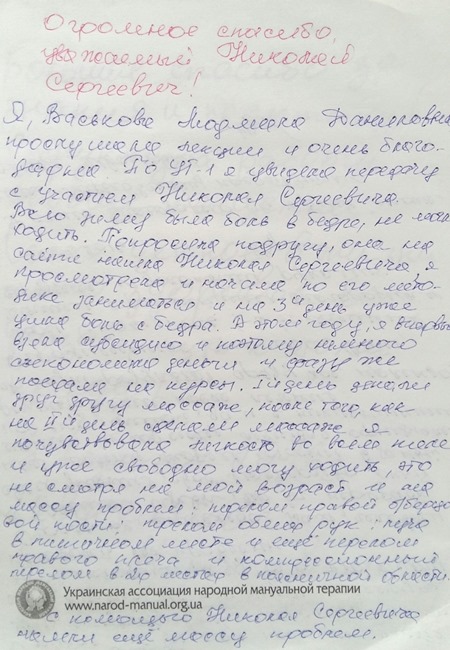 Огромное спасибо,
уважаемый Николай
Сергеевич!
Я, Васькова Людмила Даниловна
прослушала лекции и очень благо-
дарна. По УТ-1 я увидела передачу
с участием Николая Сергеевича.
Всю зиму была боль в бедре, не могла
ходить. Попросила подругу, она на
сайте нашла Николая Сергеевича, я
просмотрела и начала по его мето-
дике заниматься и на 3й день уже
ушла боль с бедра. В этом году, я впервые
взяла субсидию и поэтому немного
сэкономила деньги и сразу же
поехала на курсы. 1й день делали
друг другу массаж, после того, как
на IIй день сделали массаж я
почувствовала легкость во всем теле
и уже свободно могу ходить, это
не смотря на мой возраст и на
массу проблем: перелом правой
кости: перелом обеих рук: луча
в типичном месте и ещё перелом
правого плеча и компрессионный
перелом в 2х местах в поясничной области.
Украинская ассоциация народной мануальной терапии
www.narod-manual.org.ua
С помощью Николая Сергеевича
ещё массу проблем.